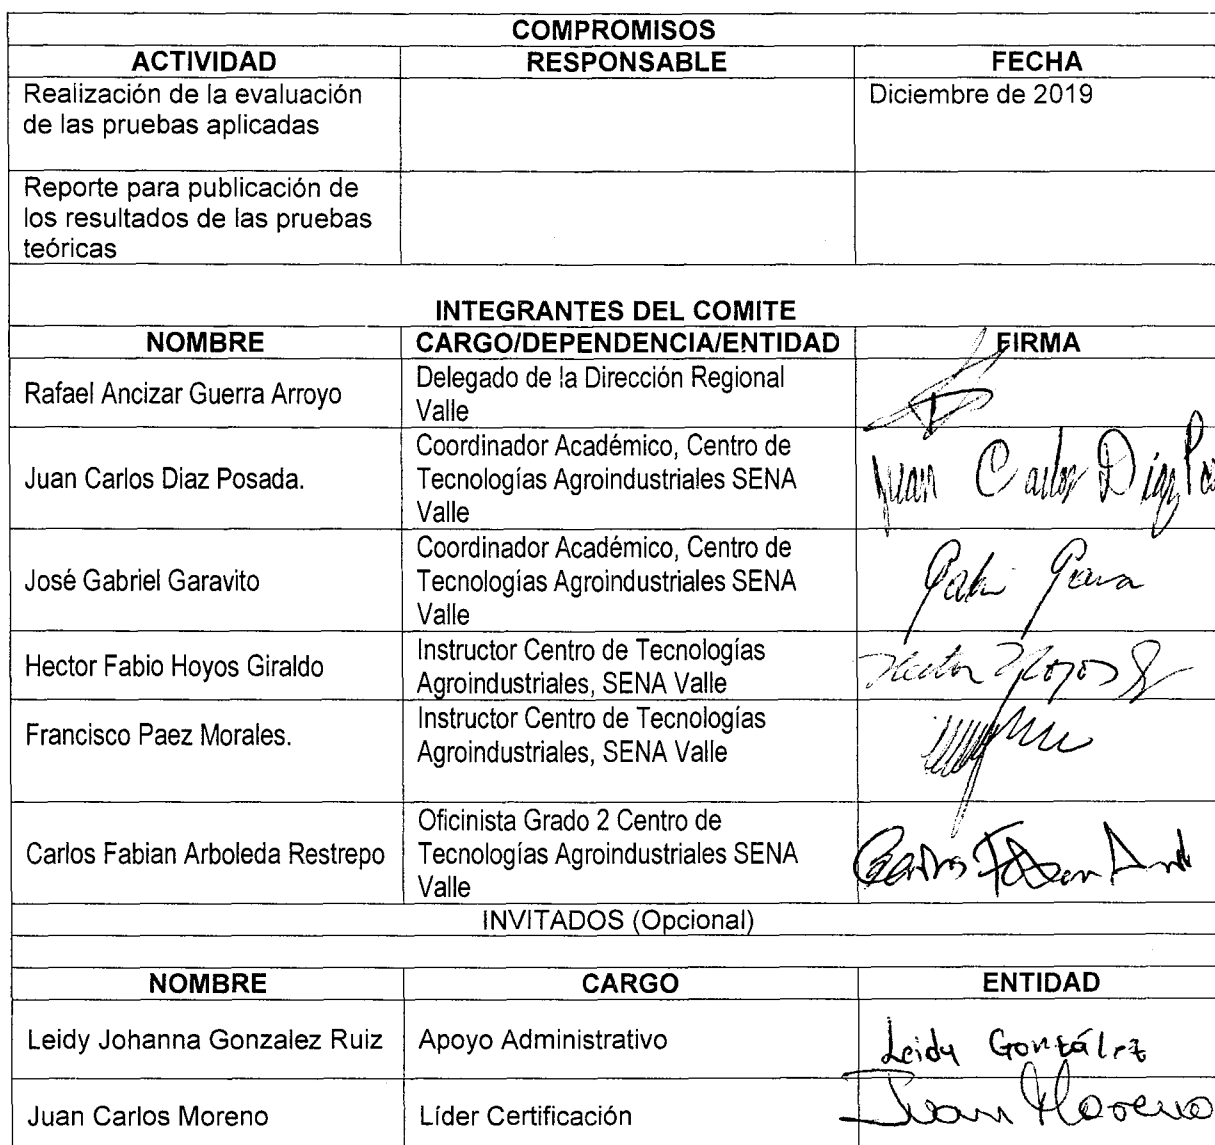 COMPROMISOS
ACTIVIDAD RESPONSABLE FECHA
Realización de la evaluación
de las pruebas aplicadas
Diciembre de 2019
Reporte para publicación de
los resultados de las pruebas
teóricas
INTEGRANTES DEL COMITE
NOMBRE CARGO/DEPENDENCIA/ENTIDAD FIRMA
Rafael Ancizar Guerra Arroyo
Delegado de la Dirección Regional
Valle
Juan Carlos Diaz Posada.
Coordinador Académico, Centro de
Tecnologías Agroindustriales SENA
Valle
Juan Carlos Diaz
José Gabriel Garavito
Coordinador Académico, Centro de
Tecnologías Agroindustriales SENA
Valle
Hector Fabio Hoyos Giraldo
Instructor Centro de Tecnologías
Agroindustriales, SENA Valle
Hector Hoyos G
Francisco Paez Morales.
Instructor Centro de Tecnologías
Agroindustriales, SENA Valle
Carlos Fabian Arboleda Restrepo
Oficinista Grado 2 Centro de
Tecnologías Agroindustriales SENA
Valle
Carlos Fabian
INVITADOS (Opcional)
NOMBRE CARGO ENTIDAD
Leidy Johanna Gonzalez Ruiz Apoyo Administrativo Leidy González
Juan Carlos Moreno Líder Certificación Juan Moreno